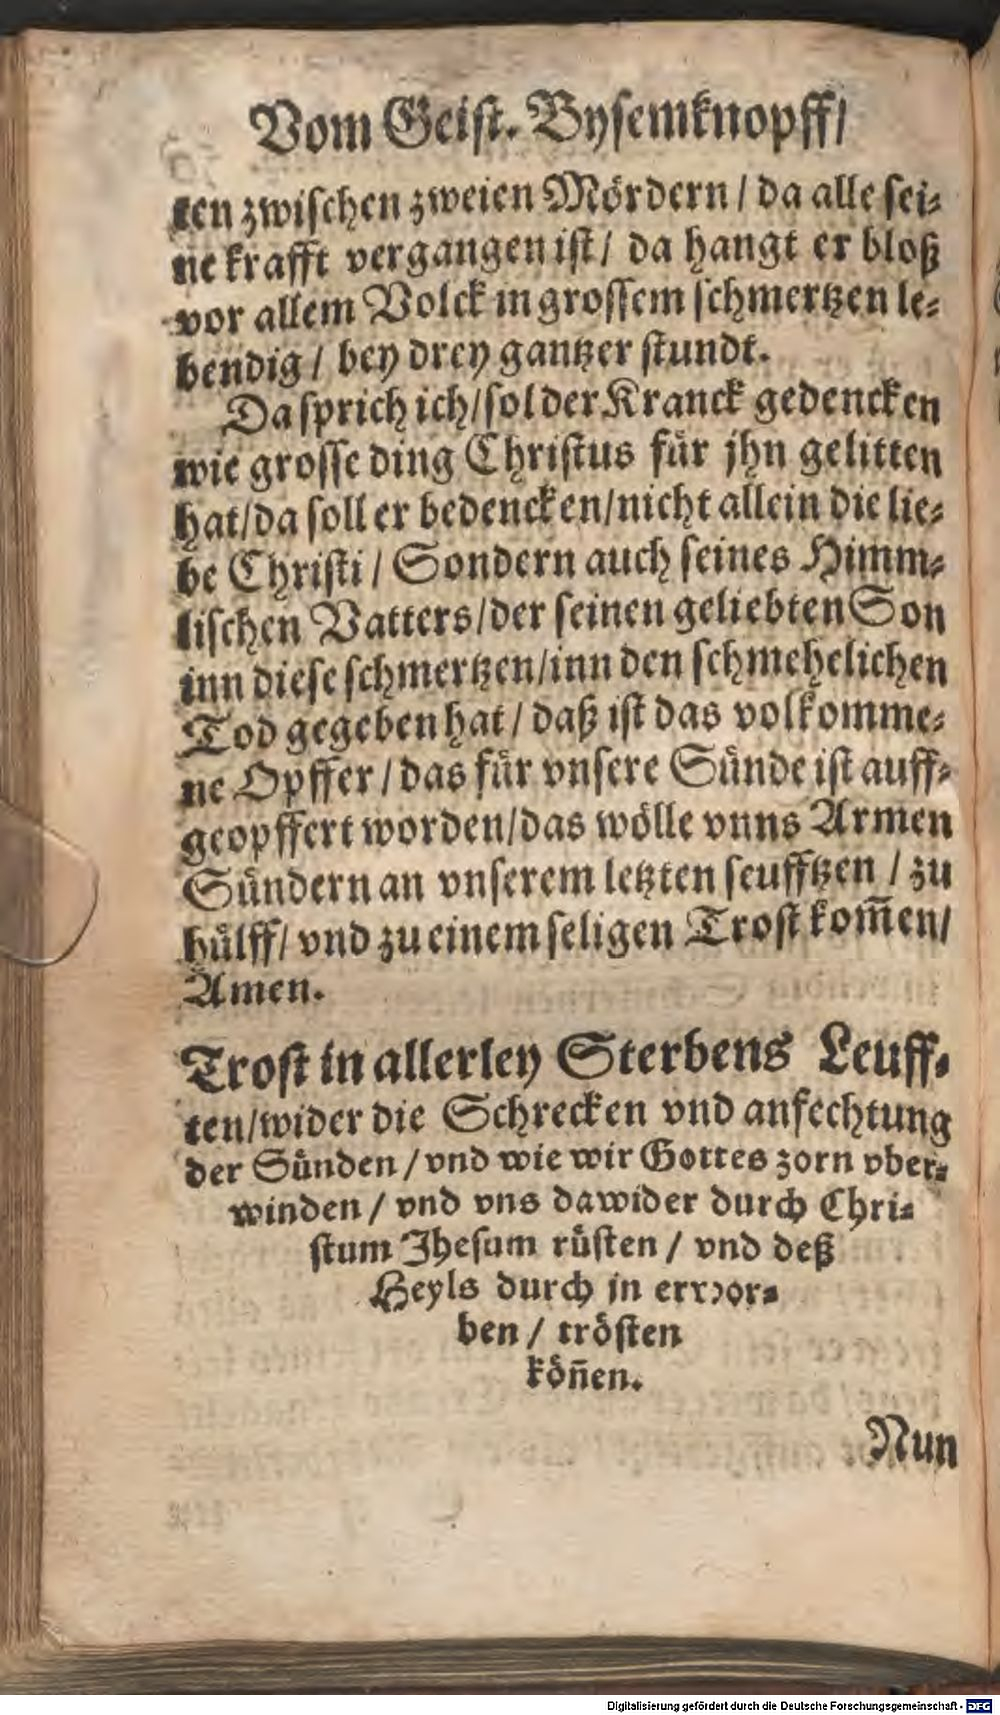 Vom Geist. Bysemknopff/
ten zwischen zweien Mördern / da alle sei-
ne krafft vergangen ist / da hangt er bloß
vor allem Volck in grossem schmertzen le-
bendig / bey drey gantzer stundt.
Da sprich ich / sol der Kranck gedencken
wie grosse ding Christus für jhn gelitten
hat / da soll er bedencken / nicht allein die lie-
be Christi / Sondern auch seines Himm-
lischen Vatters / der seinen geliebten Son
inn diese schmertzen / inn den schmehelichen
Tod gegeben hat / daß ist das volkomme-
ne Opffer / das für vnsere Sünde ist auff-
geopffert worden / das wölle vnns Armen
Sündern an vnserem letzten seufftzen / zu
hülff / vnd zu einem seligen Trost kom̃en /
Amen.
Trost in allerley Sterbens Leuff-
ten / wider die Schrecken vnd anfechtung
der Sünden / vnd wie wir Gottes zorn vber-
winden / vnd vns dawider durch Chri-
stum Jhesum rüsten / vnd deß
Heyls durch in erwor-
ben / trösten
köñen.
Nun
Digitalisierung gefördert durch die Deutsche Forschungsgemeinschaft - DFG